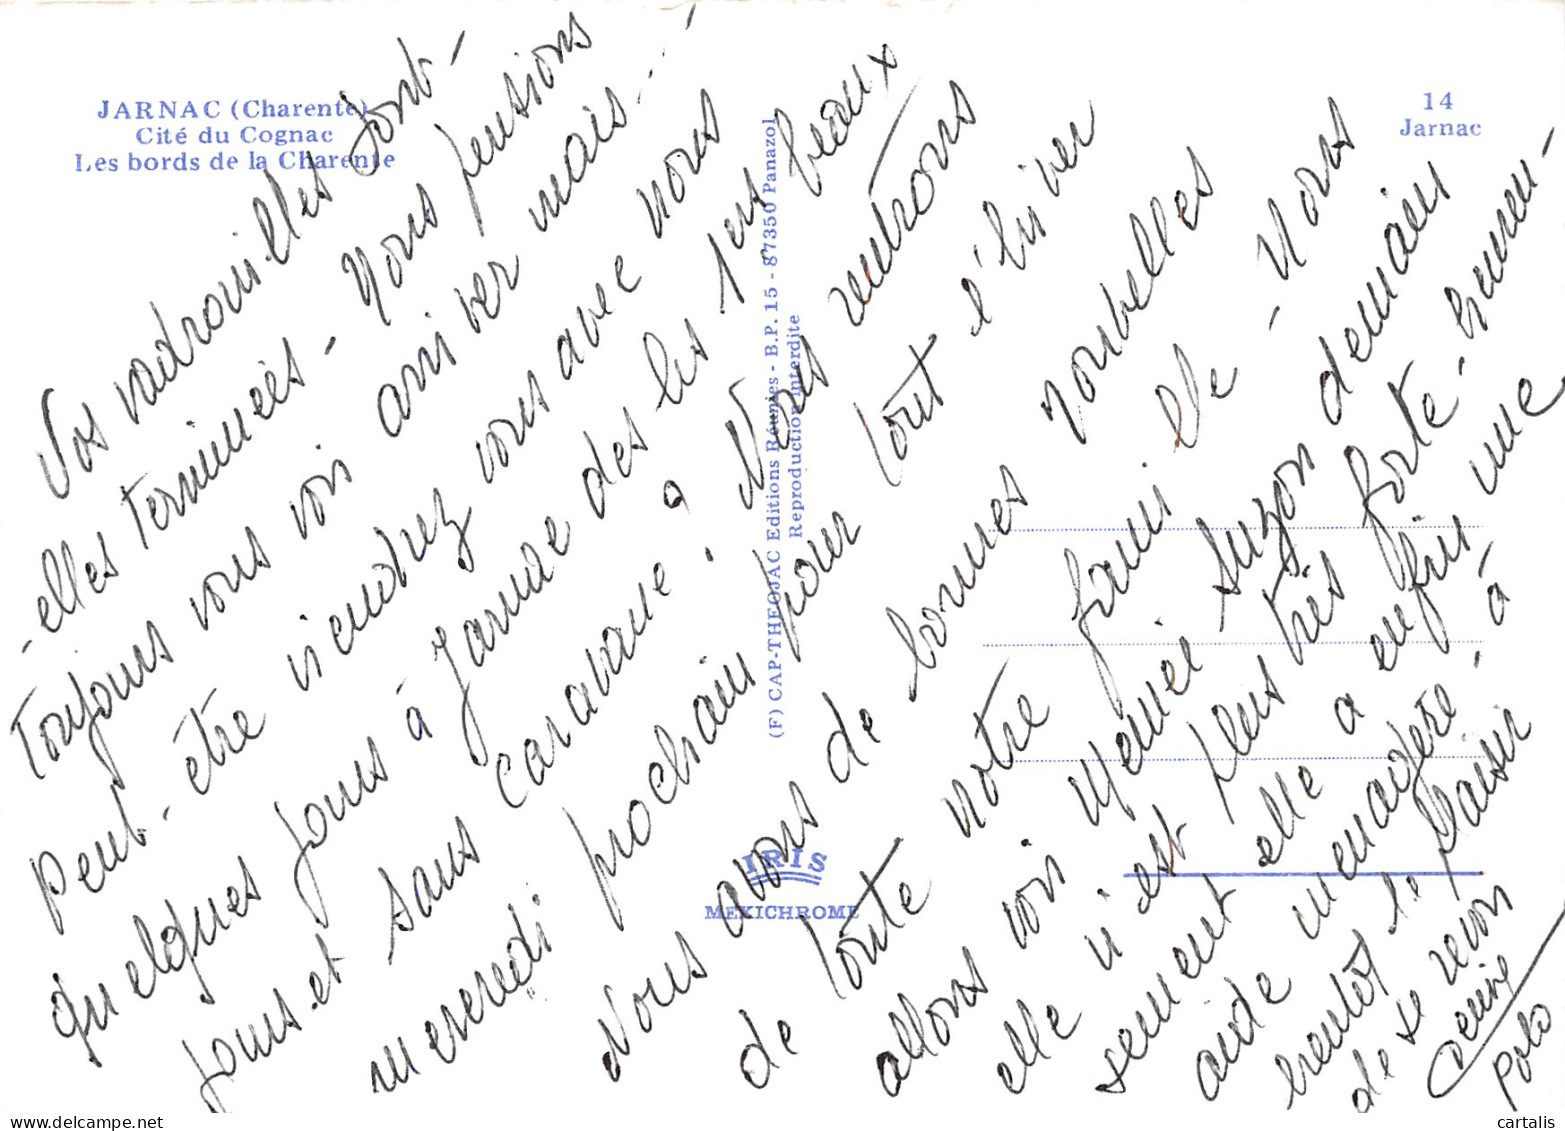 JARNAC (Charente)
Cité du Cognac
Les bords de la Charente
14
Jarnac
Vos vadrouilles sont-
-elles terminées - Nous pensions
toujours vous voir arriver mais...
peut-être viendrez vous avec nous
quelques jours à Jarnac dès les 1ers beaux
jours et sans caravane ? Nous rentrons
mercredi prochain pour tout l'hiver
Nous avons de bonnes nouvelles
de toute notre famille - Nous
allons voir Mémé Suzon demain
elle n'est plus très forte - heureu-
sement elle a enfin une
aide ménagère - à
bientôt le plaisir
de se revoir
Denise
Polo
(F) CAP-THEOJAC Editions Réunies - B.P. 15 - 87350 Panazol
Reproduction interdite
IRIS
MEXICHROME
cartalis.com